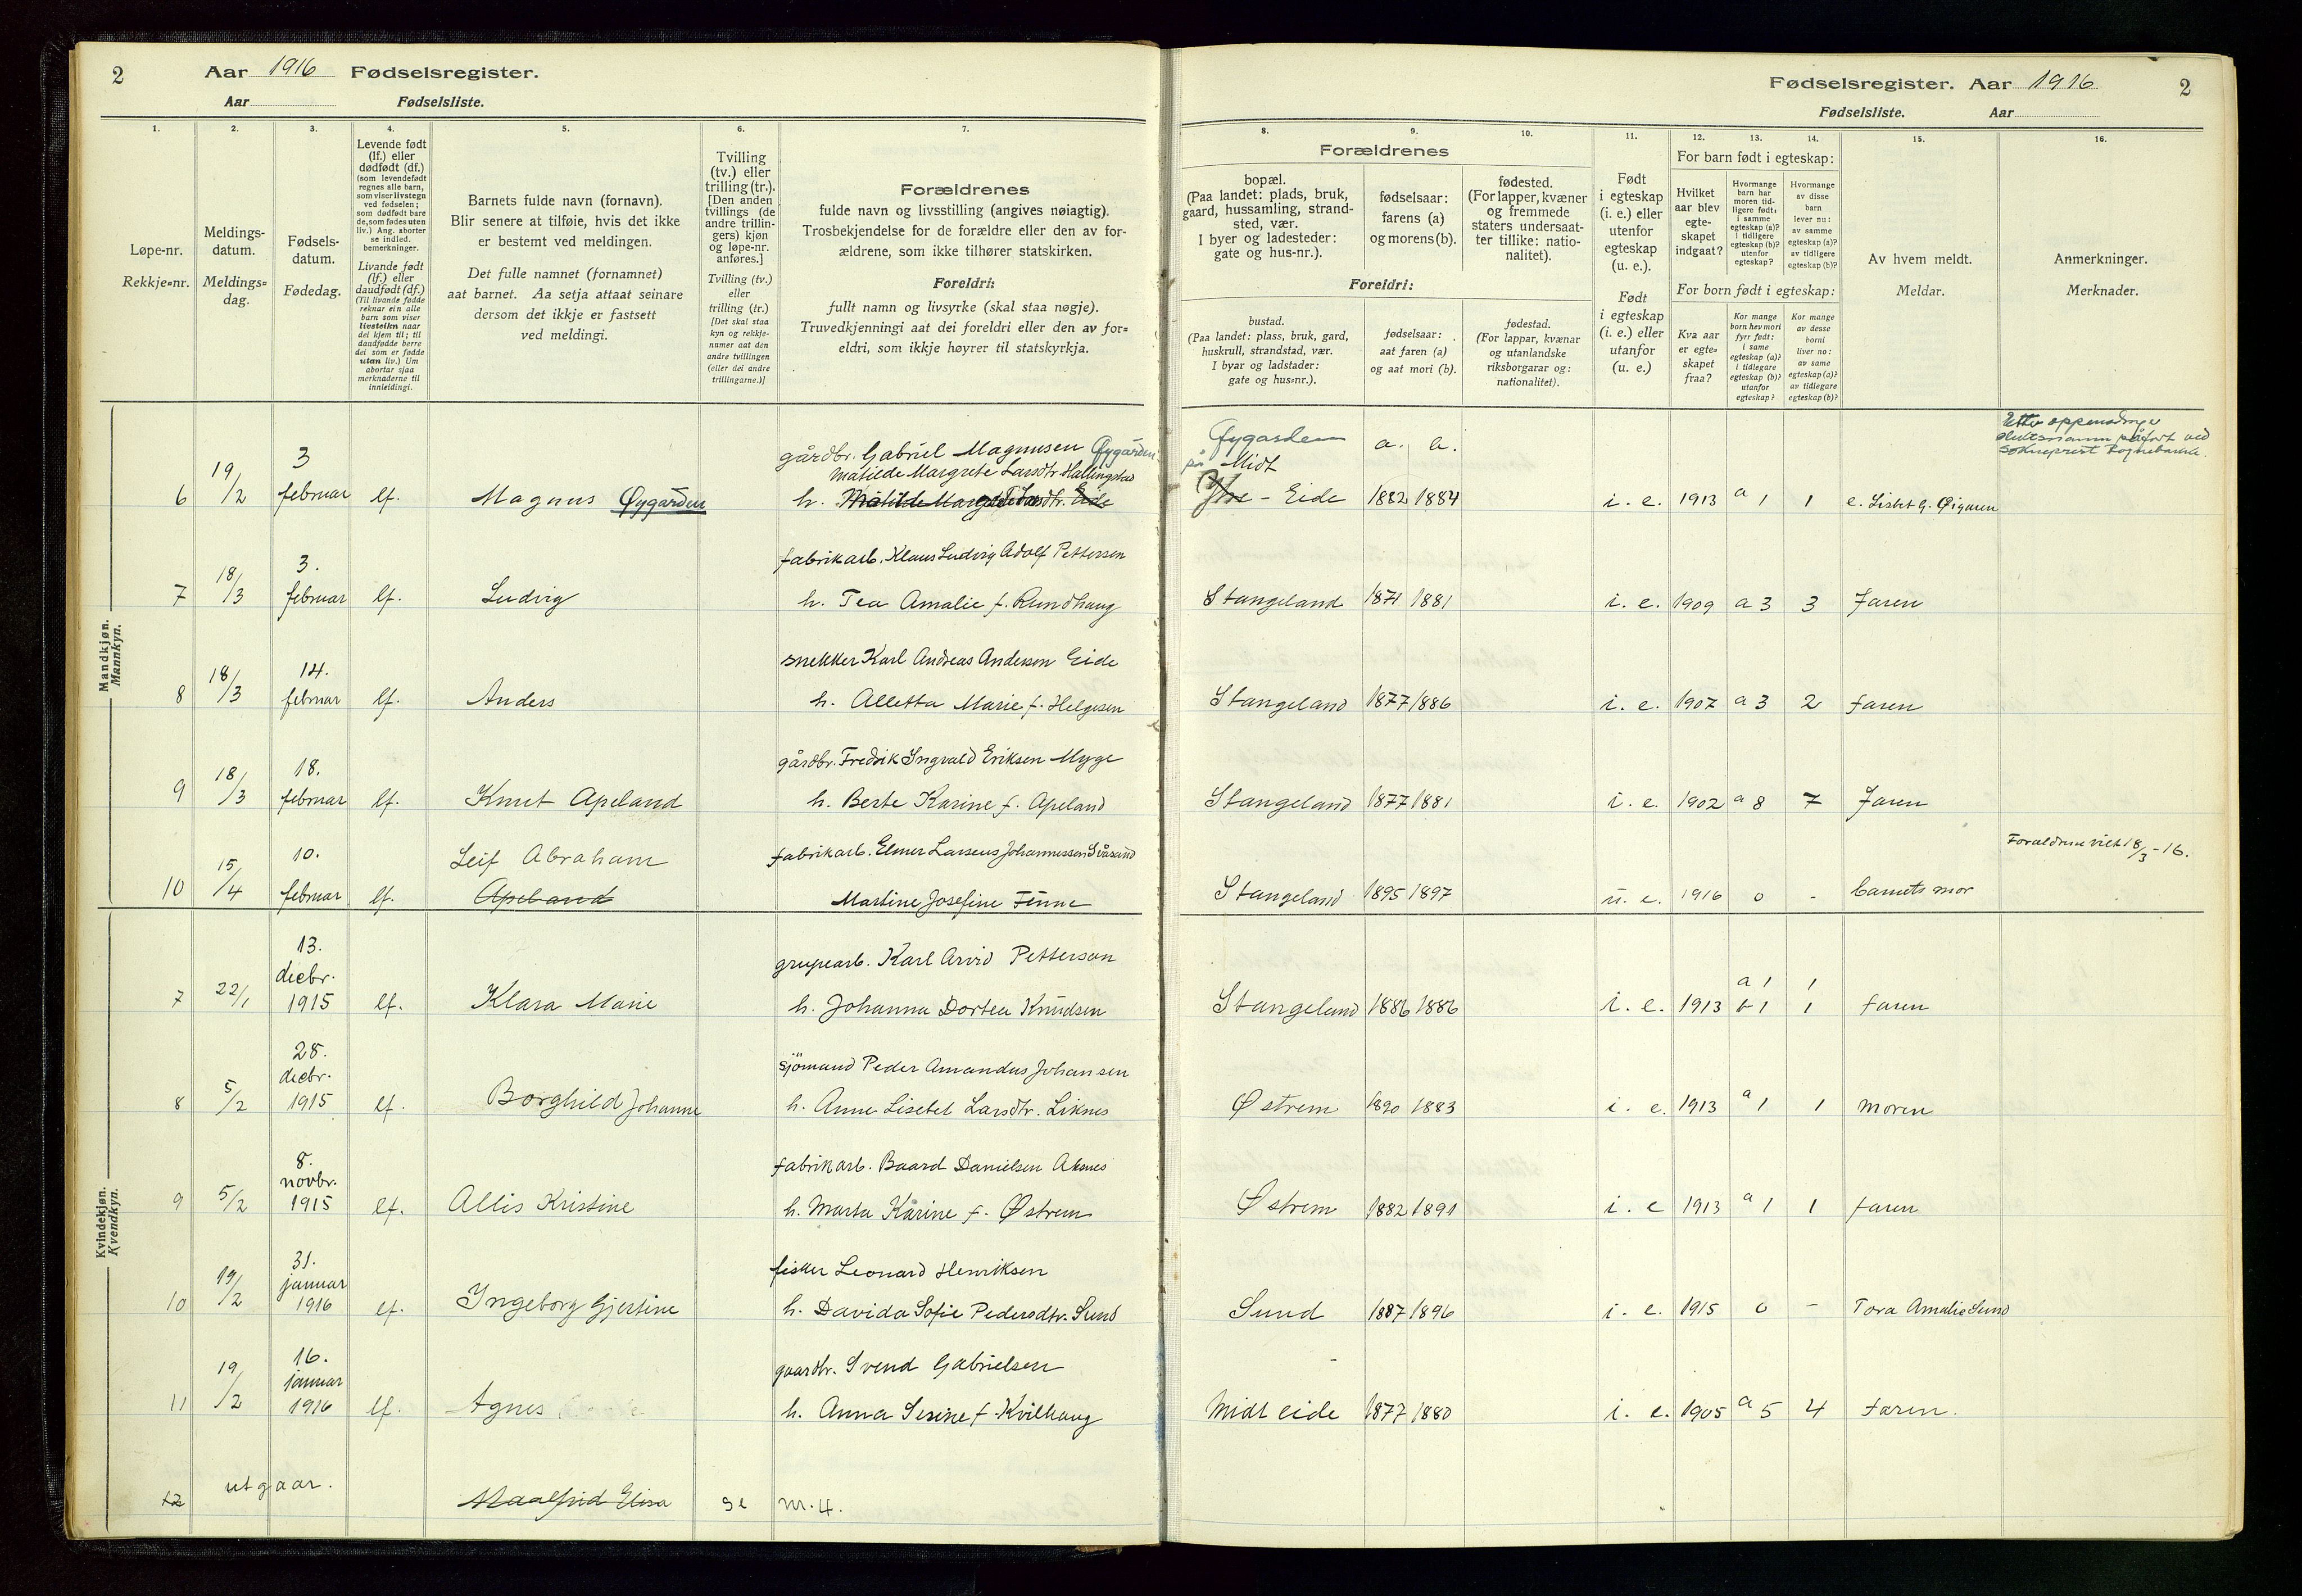 2 Aar 1916 Fødselsregister.
Aar Fødselsliste.
1. 2. 3. 4. 5. 6. 7.
Løpe-nr.
Rekkje=nr.
Meldings-
datum.
Meldings=
dag.
Fødsels-
datum.
Fødedag.
Levende født
(lf.) eller
dødfødt (df.)
(som levendefødt
regnes alle barn,
som viser livstegn
ved fødselen;
som dødfødt bare
de, som fødes uten
liv.) Ang. aborter
se indled.
bemerkninger.
Livande født
(lf.) eller
daudfødt (df.)
(Til livande fødde
reknar ein alle
barn som viser
livsteikn naar
dei kjem til; til
daudfødde berre
dei som er fødde
utan liv.) Um
abortar sjaa
merknaderne til
innleidingi.
Barnets fulde navn (fornavn).
Blir senere at tilføie, hvis det ikke
er bestemt ved meldingen.
Det fulle namnet (fornamnet)
aat barnet. Aa setja attaat seinare
dersom det ikkje er fastsett
ved meldingi.
Tvilling
(tv.) eller
trilling (tr.).
[Den anden
tvillings (de
andre trillin-
gers) kjøn
og løpe-nr.
anføres.]
Tvilling (tv.)
eller
trilling (tr.)
[Det skal staa
kyn og rekkje-
numer aat den
andre tvillingen
(eller dei andre
trillingarne.)]
Forældrenes
fulde navn og livsstilling (angives nøiagtig).
Trosbekjendelse for de forældre eller den av for-
ældrene, som ikke tilhører statskirken.
Foreldri:
fullt namn og livsyrke (skal staa nøgje).
Truvedkjenningi aat dei foreldri eller den av for=
eldri, som ikkje høyrer til statskyrkja.
Mandkjøn.
Mannkyn.
6 19/2 3 februar lf. Magnus Øygården
gårdbr. Gabriel Magnusen Øygården
Matilde Margrete Larsdtr. Hallingstad
h. Matilde Margrete Larsdtr. Eide
7 18/3 3. februar lf. Ludvig
fabrikarb. Klaus Ludvig Adolf Pettersen
h. Tea Amalie f. Rundhaug
8 18/3 14. februar lf. Anders
snekker Karl Andreas Andersen Eide
h. Alletta Marie f. Helgesen
9 18/3 18. februar lf. Knut Apeland
gårdbr. Fredrik Ingvald Eriksen Myge
h. Berte Karine f. Apeland
10 15/4 10. februar lf. Leif Abraham
Apeland
fabrikarb. Elmer Larsens Johannessen Svåsand
Martine Josefine Finne
Kvindekjøn.
Kvendkyn.
7 22/1 13. decbr. 1915 lf. Klara Marie
grupearb. Karl Arvid Petterson
h. Johanna Dortea Knudsen
8 5/2 28. decbr. 1915 lf. Borghild Johanne
sjömand Peder Amandus Johansen
h. Anne Lisebet Larsdtr. Liknes
9 5/2 8. novbr. 1915 lf. Allis Kristine
fabrikarb. Baard Danielsen Aksnes
h. Marta Karine f. Østrem
10 19/2 31. januar 1916 lf. Ingeborg Gjertine
fisker Leonard Henriksen
h. Davida Sofie Pedersdtr. Sund
11 19/2 16. januar 1916 lf. Agnes
gaardbr. Svend Gabrielsen
h. Anna Sesine f. Kvilhaug
12 utgaar. Maalfrid Elisa se nr. 4.
Fødselsregister. Aar 1916 2
Fødselsliste. Aar
8. 9. 10. 11. 12. 13. 14. 15. 16.
Forældrenes
bopæl.
(Paa landet: plads, bruk,
gaard, hussamling, strand-
sted, vær.
I byer og ladesteder:
gate og hus-nr.).
fødselsaar:
farens (a)
og morens (b).
fødested.
(For lapper, kvæner
og fremmede
staters undersaat-
ter tillike: natio-
nalitet).
Foreldri:
bustad.
(Paa landet: plass, bruk, gard,
huskrull, strandstad, vær.
I byar og ladstader:
gate og hus=nr.).
fødselsaar:
aat faren (a)
og aat mori (b).
fødestad.
(For lappar, kvænar
og utanlandske
riksborgarar og:
nationalitet).
Født
i egteskap
(i. e.) eller
utenfor
egteskap
(u. e.).
Født
i egteskap
(i. e.) eller
utanfor
(u. e.)
For barn født i egteskap:
Hvilket
aar blev
egte-
skapet
indgaat?
Hvormange
barn har
moren tid-
ligere født:
i samme
egteskap (a)?
i tidligere
egteskap (b)?
utenfor
egteskap?
Hvormange
av disse
barn
lever nu:
av samme
egteskap (a)?
av tidligere
egteskap (b)?
For born født i egteskap:
Kva aar
er egte=
skapet
fraa?
Kor mange
born hev mori
fyrr født:
i same
egteskap (a)?
i tidlegare
egteskap (b)?
utanfor
egteskap?
Kor mange
av desse
borni
liver no:
av same
egteskap (a)?
av tidlegare
egteskap (b)?
Av hvem meldt.
Meldar.
Anmerkninger.
Merknader.
Øygarden a. b.
på Midt
Ytre - Eide 1882 1884 i. e. 1913 a 1 1 e. Lisbet G. Øigaren
Etter
påført ved
sokneprest
Stangeland 1871 1881 i. e. 1909 a 3 3 Faren
Stangeland 1877 1886 i. e. 1907 a 3 2 faren
Stangeland 1877 1881 i. e. 1902 a 8 7 Faren
Stangeland 1895 1897 u. e. 1916 0 - barnets mor
Foræeldrene viet 18/3-16.
Stangeland 1886 1886 i. e. 1913 a 1 1
b 1 1 faren
Østrem 1890 1883 i. e. 1913 a 1 1 moren
Østrem 1882 1891 i. e 1913 a 1 1 faren
Sund 1887 1896 i. e. 1915 0 - Tora Amalie Sund
Midt eide 1877 1880 i. e. 1905 a 5 4 faren.